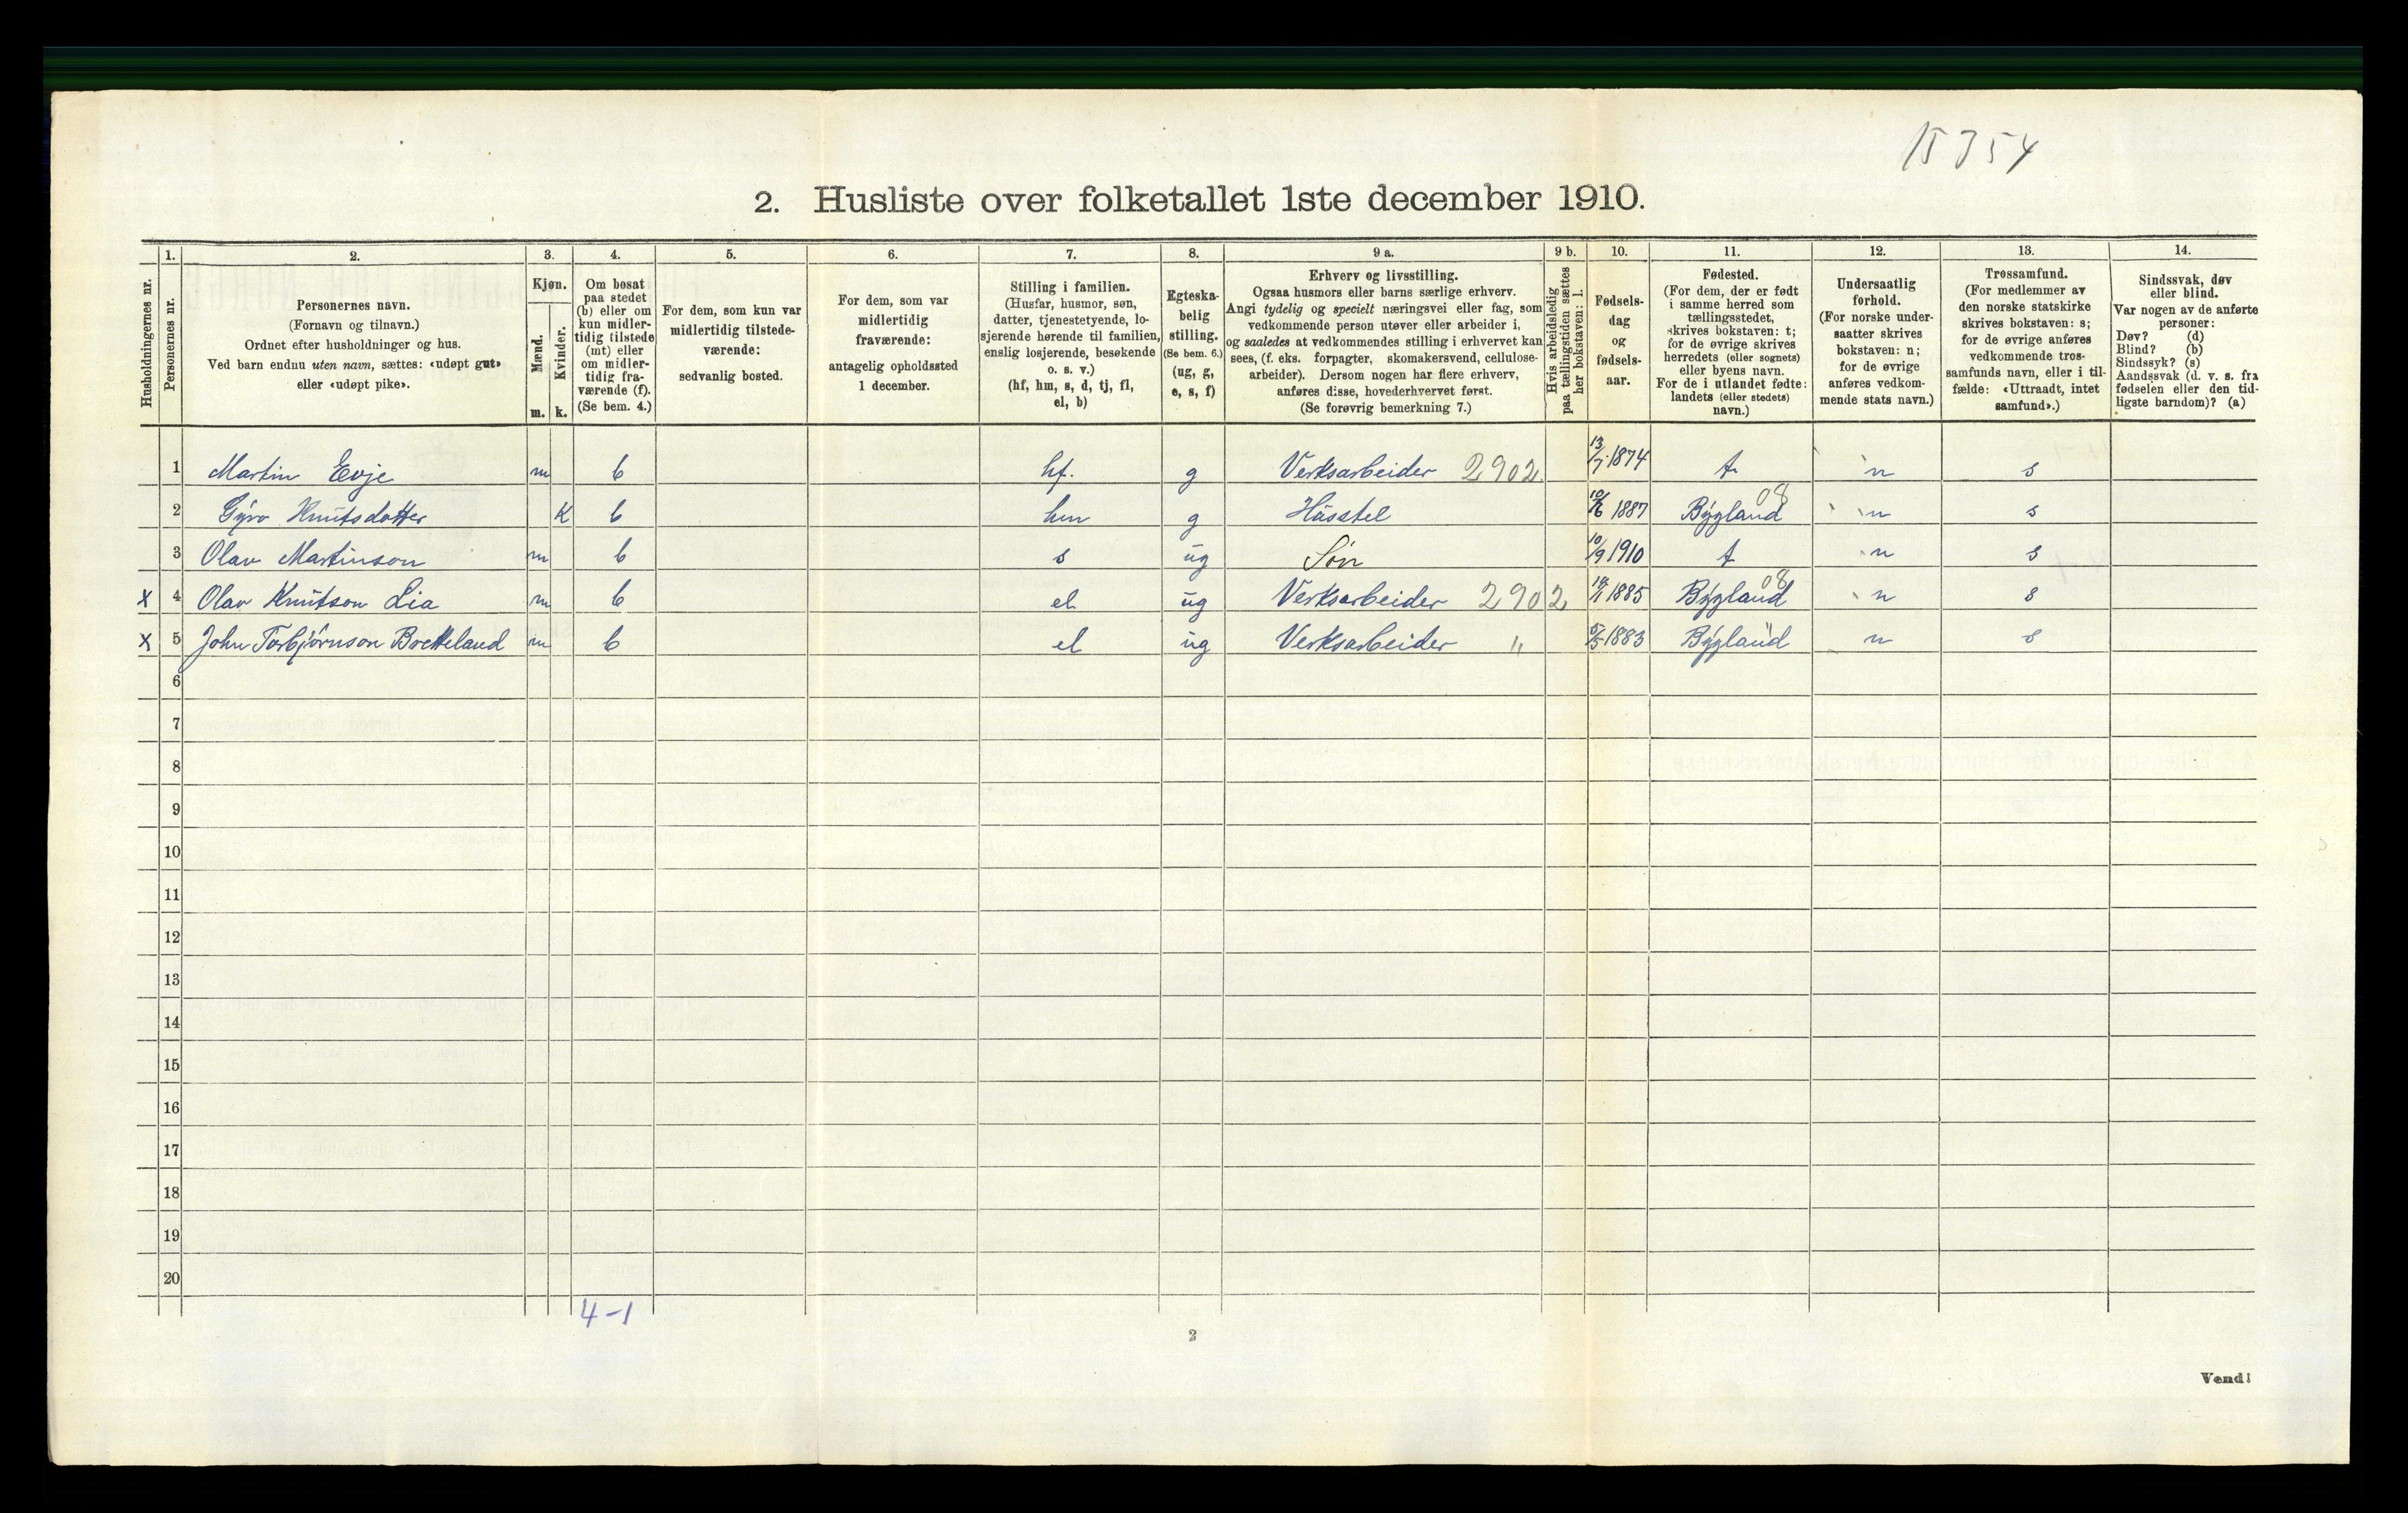 15354
2. Husliste over folketallet 1ste december 1910.
Husholdningernes nr.
1.
Personernes nr.
2.
Personernes navn.
(Fornavn og tilnavn.)
Ordnet efter husholdninger og hus.
Ved barn endnu uten navn, sættes: «udøpt gut»
eller «udøpt pike».
3.
Kjøn.
Mænd.
m.
Kvinder.
k.
4.
Om bosat
paa stedet
(b) eller om
kun midler-
tidig tilstede
(mt) eller
om midler-
tidig fra-
værende (f).
(Se bem. 4.)
5.
For dem, som kun var
midlertidig tilstede-
værende:
sedvanlig bosted.
6.
For dem, som var
midlertidig
fraværende:
antagelig opholdssted
1 december.
7.
Stilling i familien.
(Husfar, husmor, søn,
datter, tjenestetyende, lo-
sjerende hørende til familien,
enslig losjerende, besøkende
o. s. v.)
(hf, hm, s, d, tj, fl,
el, b)
8.
Egteska-
belig
stilling.
(Se bem. 6.)
(ug, g,
e, s, f)
9 a.
Erhverv og livsstilling.
Ogsaa husmors eller barns særlige erhverv.
Angi tydelig og specielt næringsvei eller fag, som
vedkommende person utøver eller arbeider i,
og saaledes at vedkommendes stilling i erhvervet kan
sees, (f. eks. forpagter, skomakersvend, cellulose-
arbeider). Dersom nogen har flere erhverv,
anføres disse, hovederhvervet først.
(Se forøvrig bemerkning 7.)
9 b.
Hvis arbeidsledig
paa tællingstiden sættes
her bokstaven: l.
10.
Fødsels-
dag
og
fødsels-
aar.
11.
Fødested.
(For dem, der er født
i samme herred som
tællingsstedet,
skrives bokstaven: t;
for de øvrige skrives
herredets (eller sognets)
eller byens navn.
For de i utlandet fødte:
landets (eller stedets)
navn.)
12.
Undersaatlig
forhold.
(For norske under-
saatter skrives
bokstaven: n;
for de øvrige
anføres vedkom-
mende stats navn.)
13.
Trossamfund.
(For medlemmer av
den norske statskirke
skrives bokstaven: s;
for de øvrige anføres
vedkommende tros-
samfunds navn, eller i til-
fælde: «Uttraadt, intet
samfund».)
14.
Sindssvak, døv
eller blind.
Var nogen av de anførte
personer:
Døv? (d)
Blind? (b)
Sindssyk? (s)
Aandssvak (d. v. s. fra
fødselen eller den tid-
ligste barndom)? (a)
1 Martin Evje m b hf. g Verksarbeider 2902 13/7 1874 t n s
2 Gyro Knutsdotter K b hm g Husstel 10/6 1887 Bygland 08 n s
3 Olav Martinson m b s ug Søn 10/9 1910 t n s
x 4 Olav Knutson Lia m b el ug Verksarbeider 2902 1885 Bygland 08 n s
x 5 John Torbjørnson Bretteland m b el ug Verksarbeider " 5/5 1883 Bygland " n s
6
7
8
9
10
11
12
13
14
15
16
17
18
19
20
4-1
2
Vend!